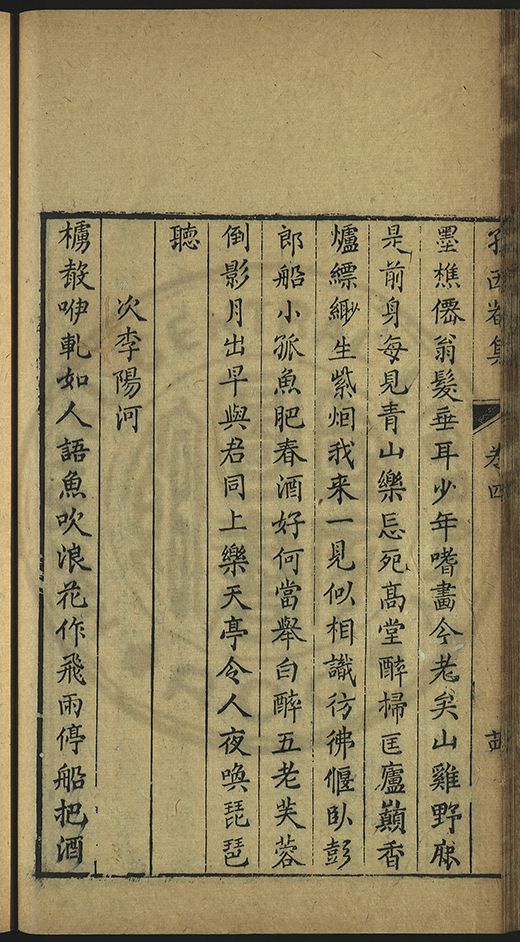 孫西菴集 卷四
墨樵僊翁髮垂耳少年嗜畫今老矣山雞野麋
是前身每見青山樂忘死高堂醉掃匡廬巔香
爐縹緲生紫烟我来一見似相識彷彿偃臥彭
郎船小孤魚肥春酒好何當舉白醉五老芙蓉
倒影月出早與君同上樂天亭令人夜喚琵琶
聽
次李陽河
櫓聲咿軋如人語魚吹浪花作飛雨停船把酒